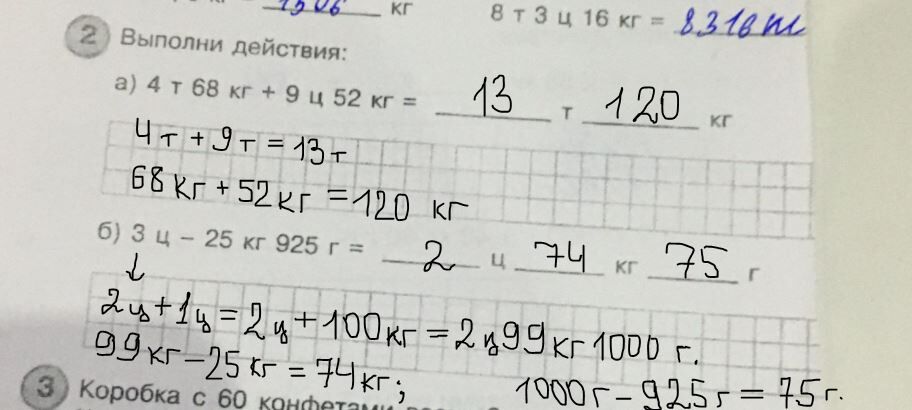 1506 кг
8 т 3 ц 16 кг = 8316 кг
2 Выполни действия:
а) 4 т 68 кг + 9 ц 52 кг = 13 т 120 кг
4т + 9т = 13т
68 кг + 52 кг = 120 кг
б) 3 ц – 25 кг 925 г = 2 ц 74 кг 75 г
↓
2ц + 1ц = 2ц + 100кг = 2ц 99 кг 1000 г.
99 кг – 25 кг = 74 кг; 1000г – 925г = 75г.
3 Коробка с 60 конфетами